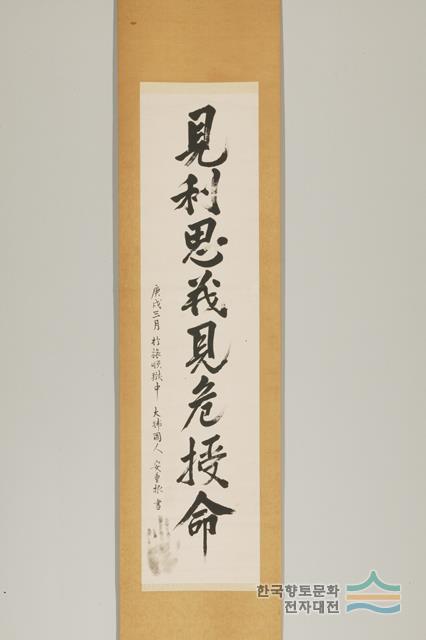 見利思義見危授命
庚戌三月 於旅順獄中 大韓國人 安重根 書
한국향토문화
전자대전